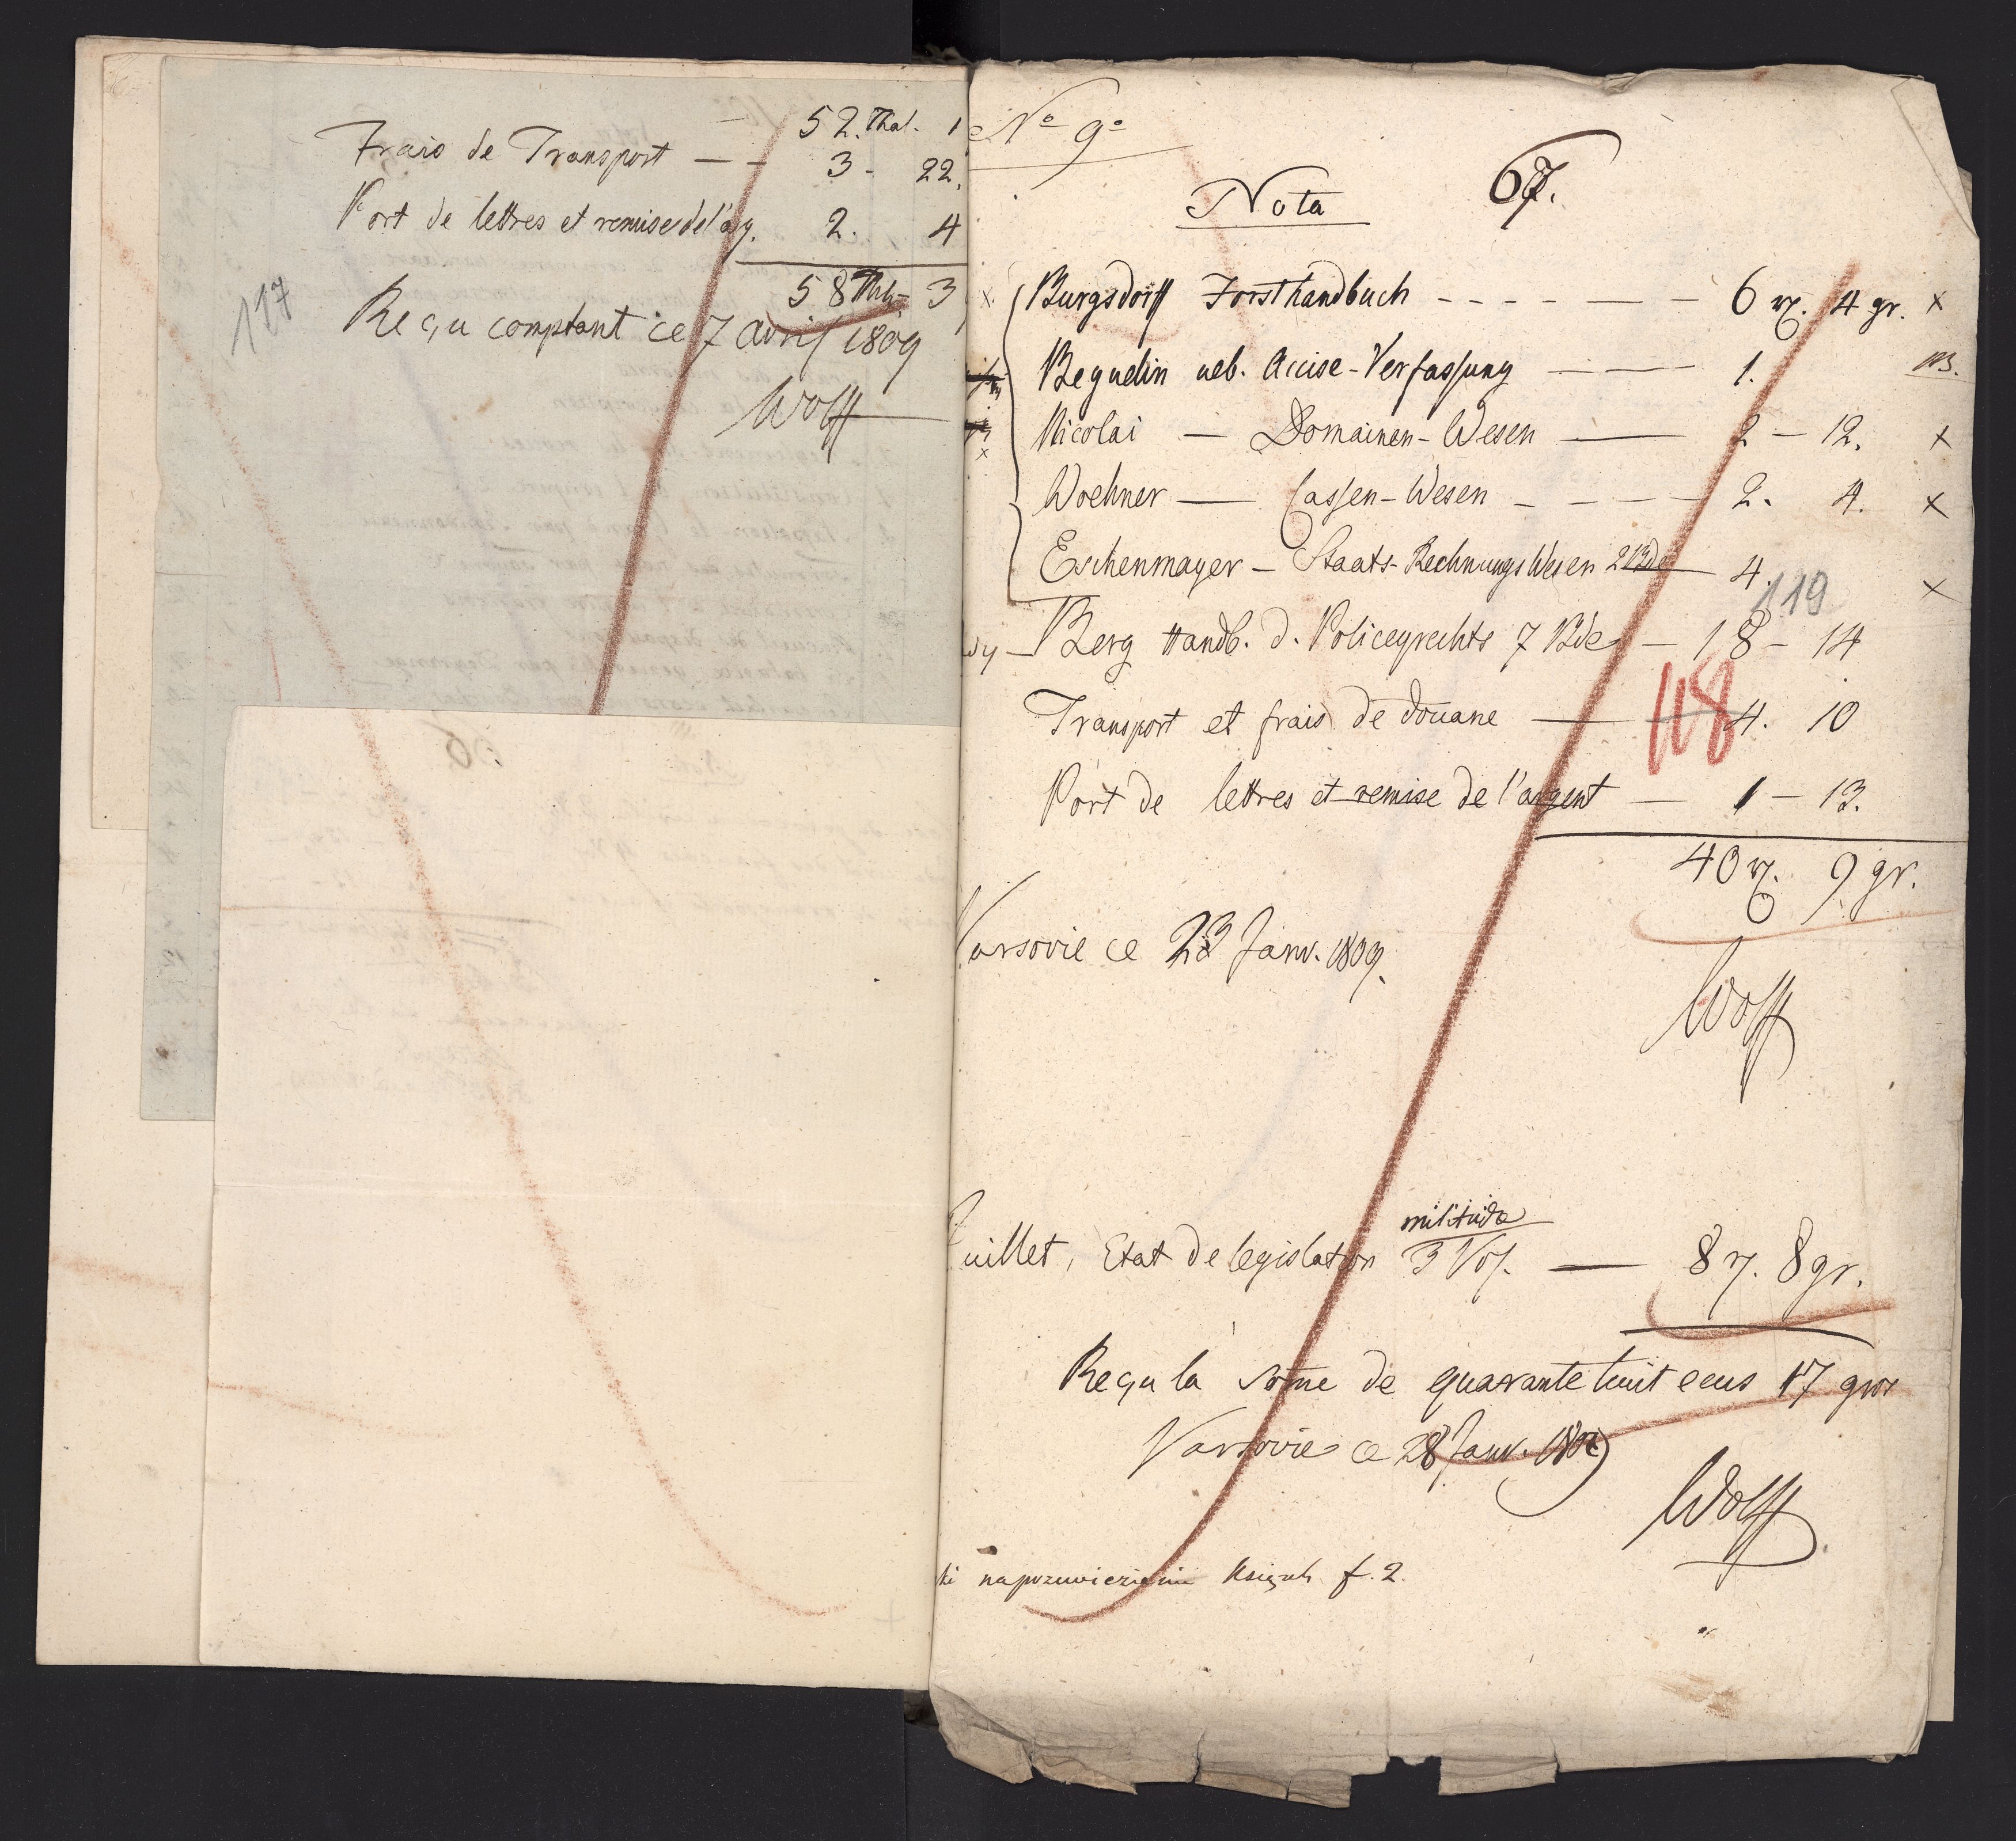 52. Thal. 1
Frais de Transport — - 3 - 22.
Port de lettres et remise de l'arg. 2. 4
58 Thl- 3
117
Reçu comptant ce 7 avril 1809
Wolff
No 9o
67.
Nota
Burgsdorff Forsthandbuch - - - - — — — 6 rz. 4 gr. x
Beguelin ueb. Accise-Verfassung — — — 1. NB.
Nicolai — Domainen-Wesen — 2 — 12. x
Woehner — Cassen-Wesen - - - — — 2. 4. x
Eschenmayer — Staats-Rechnungs Wesen 2 Bde — 4. x
119
Berg Handb. d. Policeyrechts 7 Bde — 18 - 14
118
Transport et frais de douane — 4. 10
Port de lettres et remise de l'argent — 1 — 13.
40 rz. 9 gr.
Varsovie ce 23 Janv. 1809.
Wolff
militaire
Quillet, Etat de legislation 3 Vol. — 8 rz. 8 gr.
Reçu la some de quarante huit ecus 17 gros
Varsovie ce 28 Janv. 1809
Wolff
Książek f. 2.